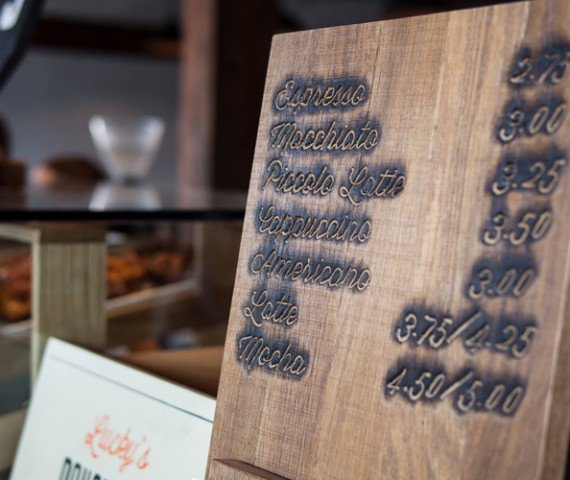 Espresso 2.75
Macchiato 3.00
Piccolo Latte 3.25
Cappuccino 3.50
Americano 3.00
Latte 3.75/4.25
Mocha 4.50/5.00
Lucky's